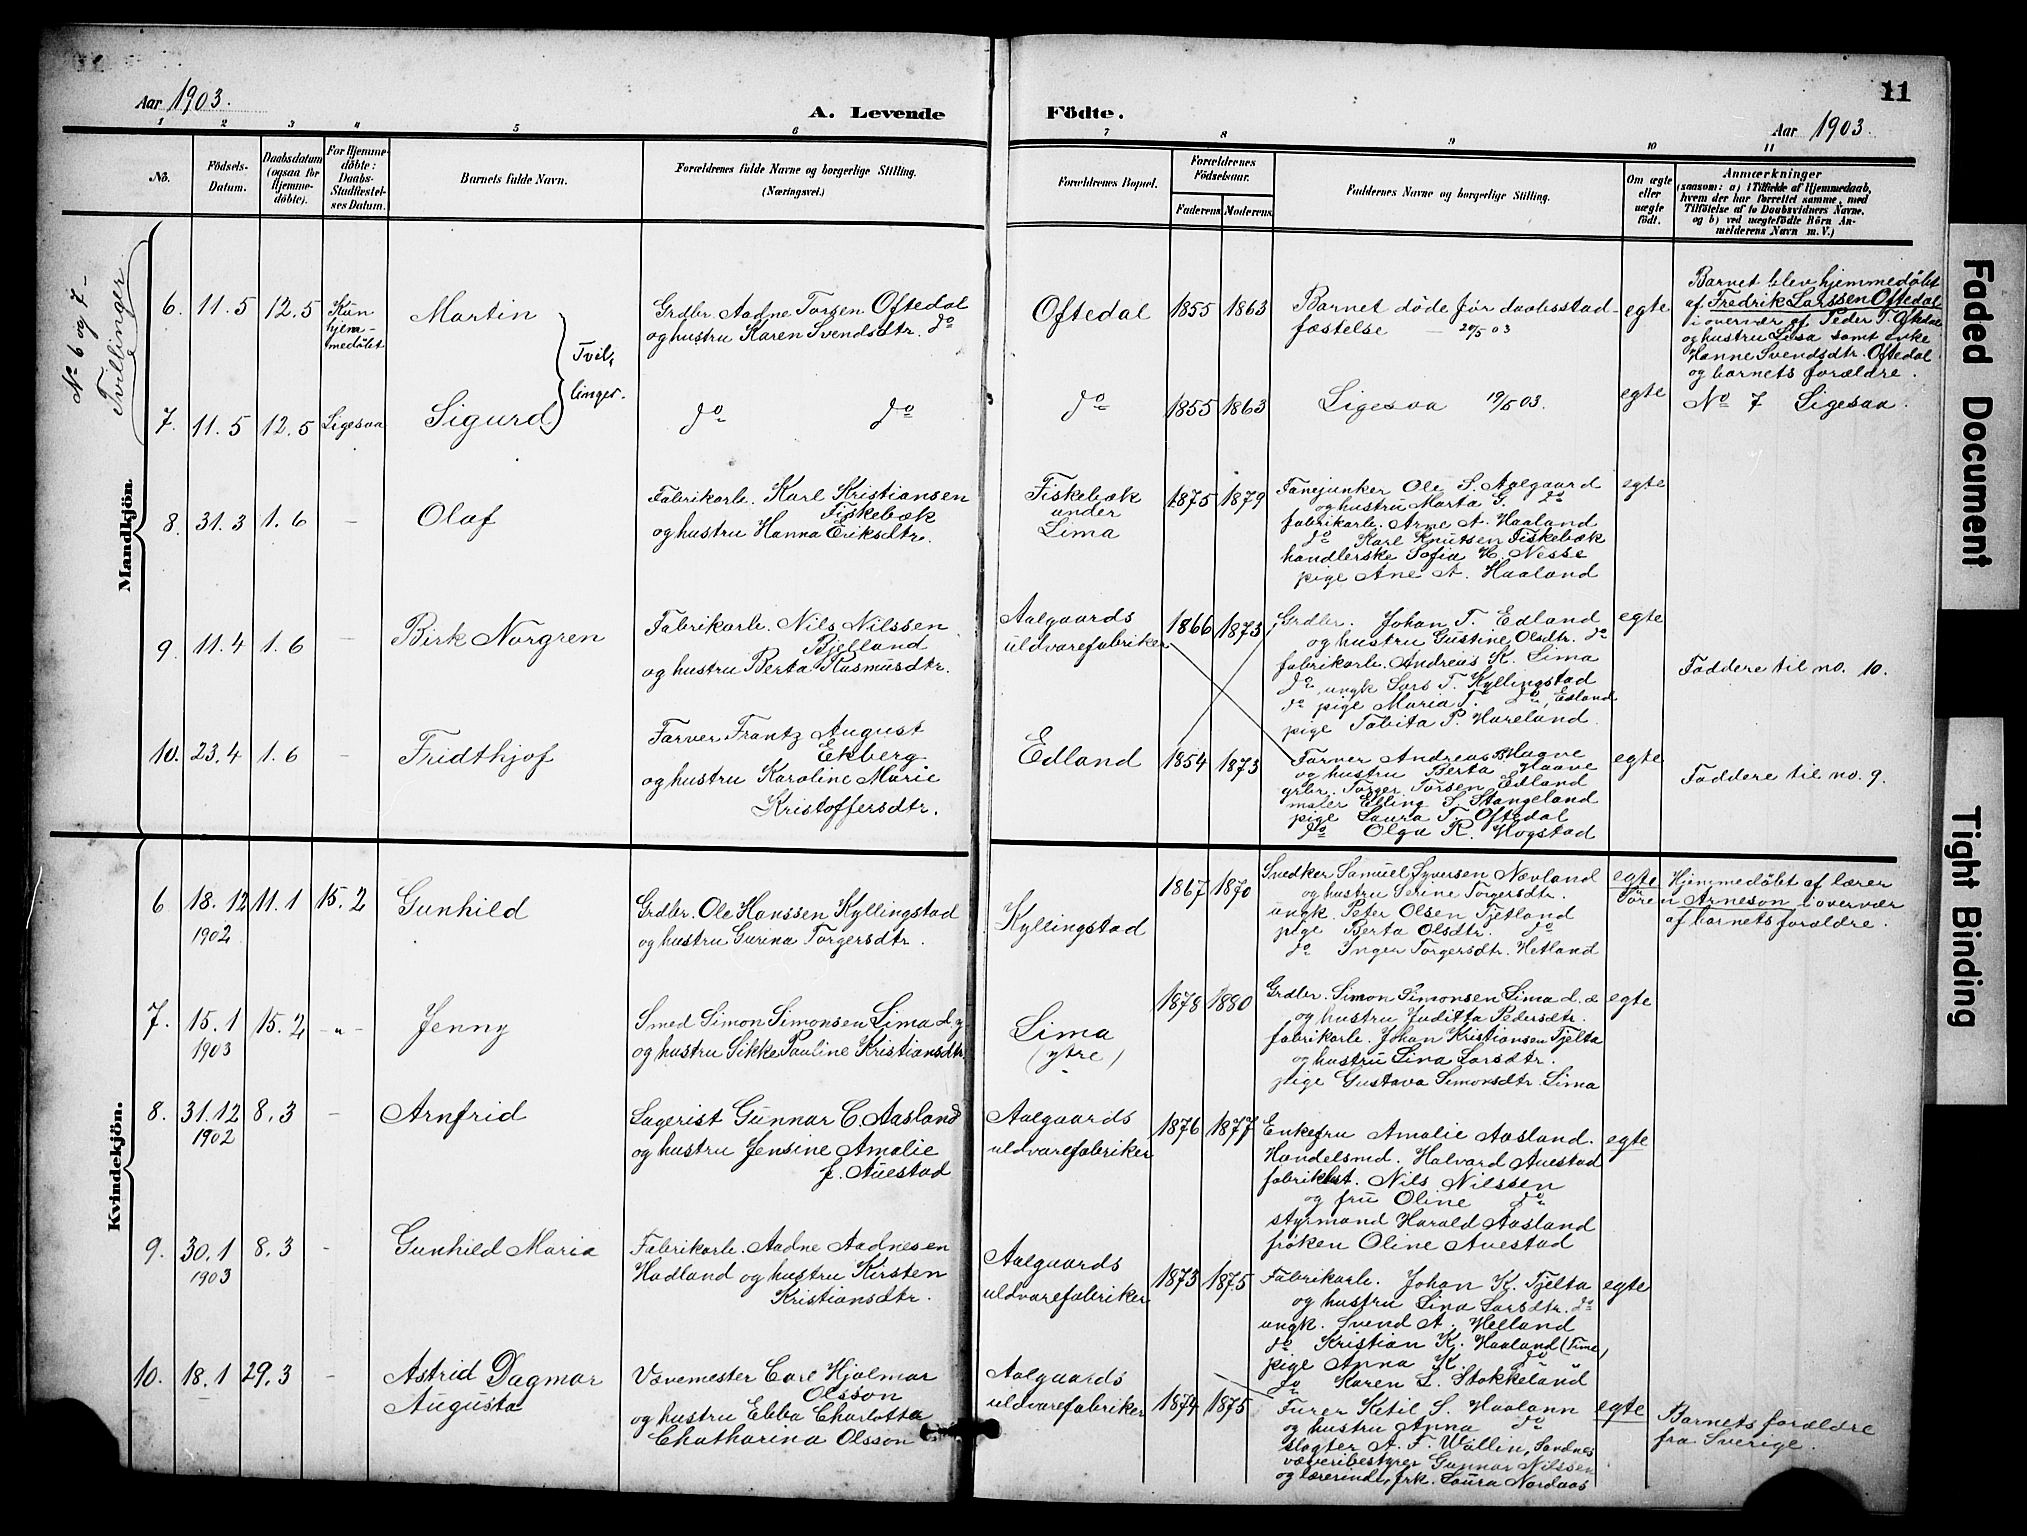 Aar 1903.
A. Levende
Födte.
11
Aar 1903.
1 2 3 4 5 6 7 8 9 10 11
No.
Födsels-
Datum.
Daabsdatum
(ogsaa for
Hjemme-
döbte).
For Hjemme-
döbte:
Daabs-
Stadfæstel-
ses Datum.
Barnets fulde Navn.
Forældrenes fulde Navne og borgerlige Stilling.
(Næringsvei.)
Forældrenes Bopæl.
Forældrenes
Födselsaar.
Faderens
Moderens
Faddernes Navne og borgerlige Stilling.
Om ægte
eller
uægte
födt.
Anmærkninger
(saasom: a) i Tilfælde af Hjemmedaab,
hvem der har forrettet samme, med
Tilföielse af to Daabsvidners Navne,
og b) ved uægtefödte Börn An-
melderens Navn m. V.)
No 6 og 7 -
Tvillinger
Mandkjön.
6. 11.5 12.5
Kun
hjem-
medöbt
Martin
Tvil-
linger.
Grdbr. Aadne Torsen Oftedal
og hustru Karen Svendsdtr. do
Oftedal
1855 1863
Barnet döde för daabsstad-
fæstelse - 20/5 03
egte
Barnet blev hjemmedöbt
af Fredrik Larssen Oftedal
i overvær af Peder T. Oftedal
og hustru Lisa samt enke
Hanne Svendsdtr. Oftedal
og barnets forældre.
7. 11.5 12.5 Ligesaa
Sigurd
do do
do
1855 1863
Ligesaa 19/5 03.
egte
No 7 Ligesaa.
8. 31.3 1.6 -
Olaf
Fabrikarb. Karl Kristiansen
Fiskebæk
og hustru Hanna Eriksdtr.
Fiskebæk
under
Lima
1875 1879
Fanejunker Ole S. Aalgaard
og hustru Marta G. do
fabrikarb. Arne A. Haaland
do Karl Knutsen Fiskebæk
handlerske Sofia H. Nesse
pige Ane A. Haaland
egte
9. 11.4 1.6 -
Birk Norgren
Fabrikarb. Nils Nilssen
Bjelland
og hustru Berta Rasmusdtr.
Aalgaards
uldvarefabriker
1866 1873
Grdbr. Johan T. Edland
og hustru Gustine Olsdtr. do
fabrikarb. Andreas K. Lima
do, ungk Lars T. Kyllingstad
do pige Maria T. do, Edland
pige Tabita P. Hareland.
egte
Faddere til no. 10.
10. 23.4 1.6 -
Fridthjof
Farver Frantz August
Ekberg
og hustru Karoline Marie
Kristoffersdtr.
Edland
1854 1873
Farver Andreas Haave
og hustru Berta Haave
grbr. Torger Torsen Edland
maler Elling S. Stangeland
pige Laura T. Oftedal
do Olga R. Hogstad
egte
Faddere til no. 9.
Kvindekjön.
6 18.12 11.1 15.2
1902
Gunhild
Grdbr. Ole Hanssen Kyllingstad
og hustru Gurina Torgersdtr.
Kyllingstad
1867 1870
Snedker Samuel Syversen Nævland
og hustru Serine Torgersdtr.
ungk. Peter Olsen Tjetland
pige Berta Olsdtr. do
do Inger Torgersdtr. Hetland
egte
Hjemmedöbt af lærer
Sören Arneson i overvær
af barnets forældre.
7. 15.1 15.2 -"-
1903
Jenny
Smed Simon Simonsen Lima d. y
og hustru Sikke Pauline Kristiansdtr.
Lima
(ytre)
1878 1880
Grdbr. Simon Simonsen Lima d. æ
og hustru Juditta Pedersdtr.
fabrikarb. Johan Kristiansen Tjelta
og hustru Lina Larsdtr.
pige Gustava Simonsdtr. Lima
egte
8. 31.12 8.3 -
1902
Arnfrid
Lagerist Gunnar C. Aasland
og hustru Jensine Amalie
f. Auestad
Aalgaards
uldvarefabriker
1876 1877
Enkefru Amalie Aasland.
Handelsmd. Halvard Auestad
Nils Nilssen
og fru Oline do
styrmand Harald Aasland
fröken Oline Auestad
egte
9. 30.1 8.3 -
1903
Gunhild Maria
Fabrikarb. Aadne Aadnesen
Hadland og hustru Kirsten
Kristiansdtr.
Aalgaards
uldvarefabriker
1873 1875
Fabrikarb. Johan K. Tjelta
og hustru Lina Larsdtr. do
ungk. Svend A. Helland
do Kristian K. Haaland (Time)
pige Anna K. do
do Karen L. Stokkeland
egte
10. 18.1 29.3 -
Astrid Dagmar
Augusta
Vævemester Carl Hjalmar
Olsson
og hustru Ebba Charlotta
Chatharina Olsson
Aalgaards
uldvarefabriker
1874 1875
Furer Ketil S. Haalann
og hustru Anna do
slagter A. F. Wallin, Sandnes
væveribestyrer Gunnar Nilssen
og lærerinde, frk. Laura Nordaas
egte
Barnets forældre
fra Sverige.
Faded Document
Tight Binding